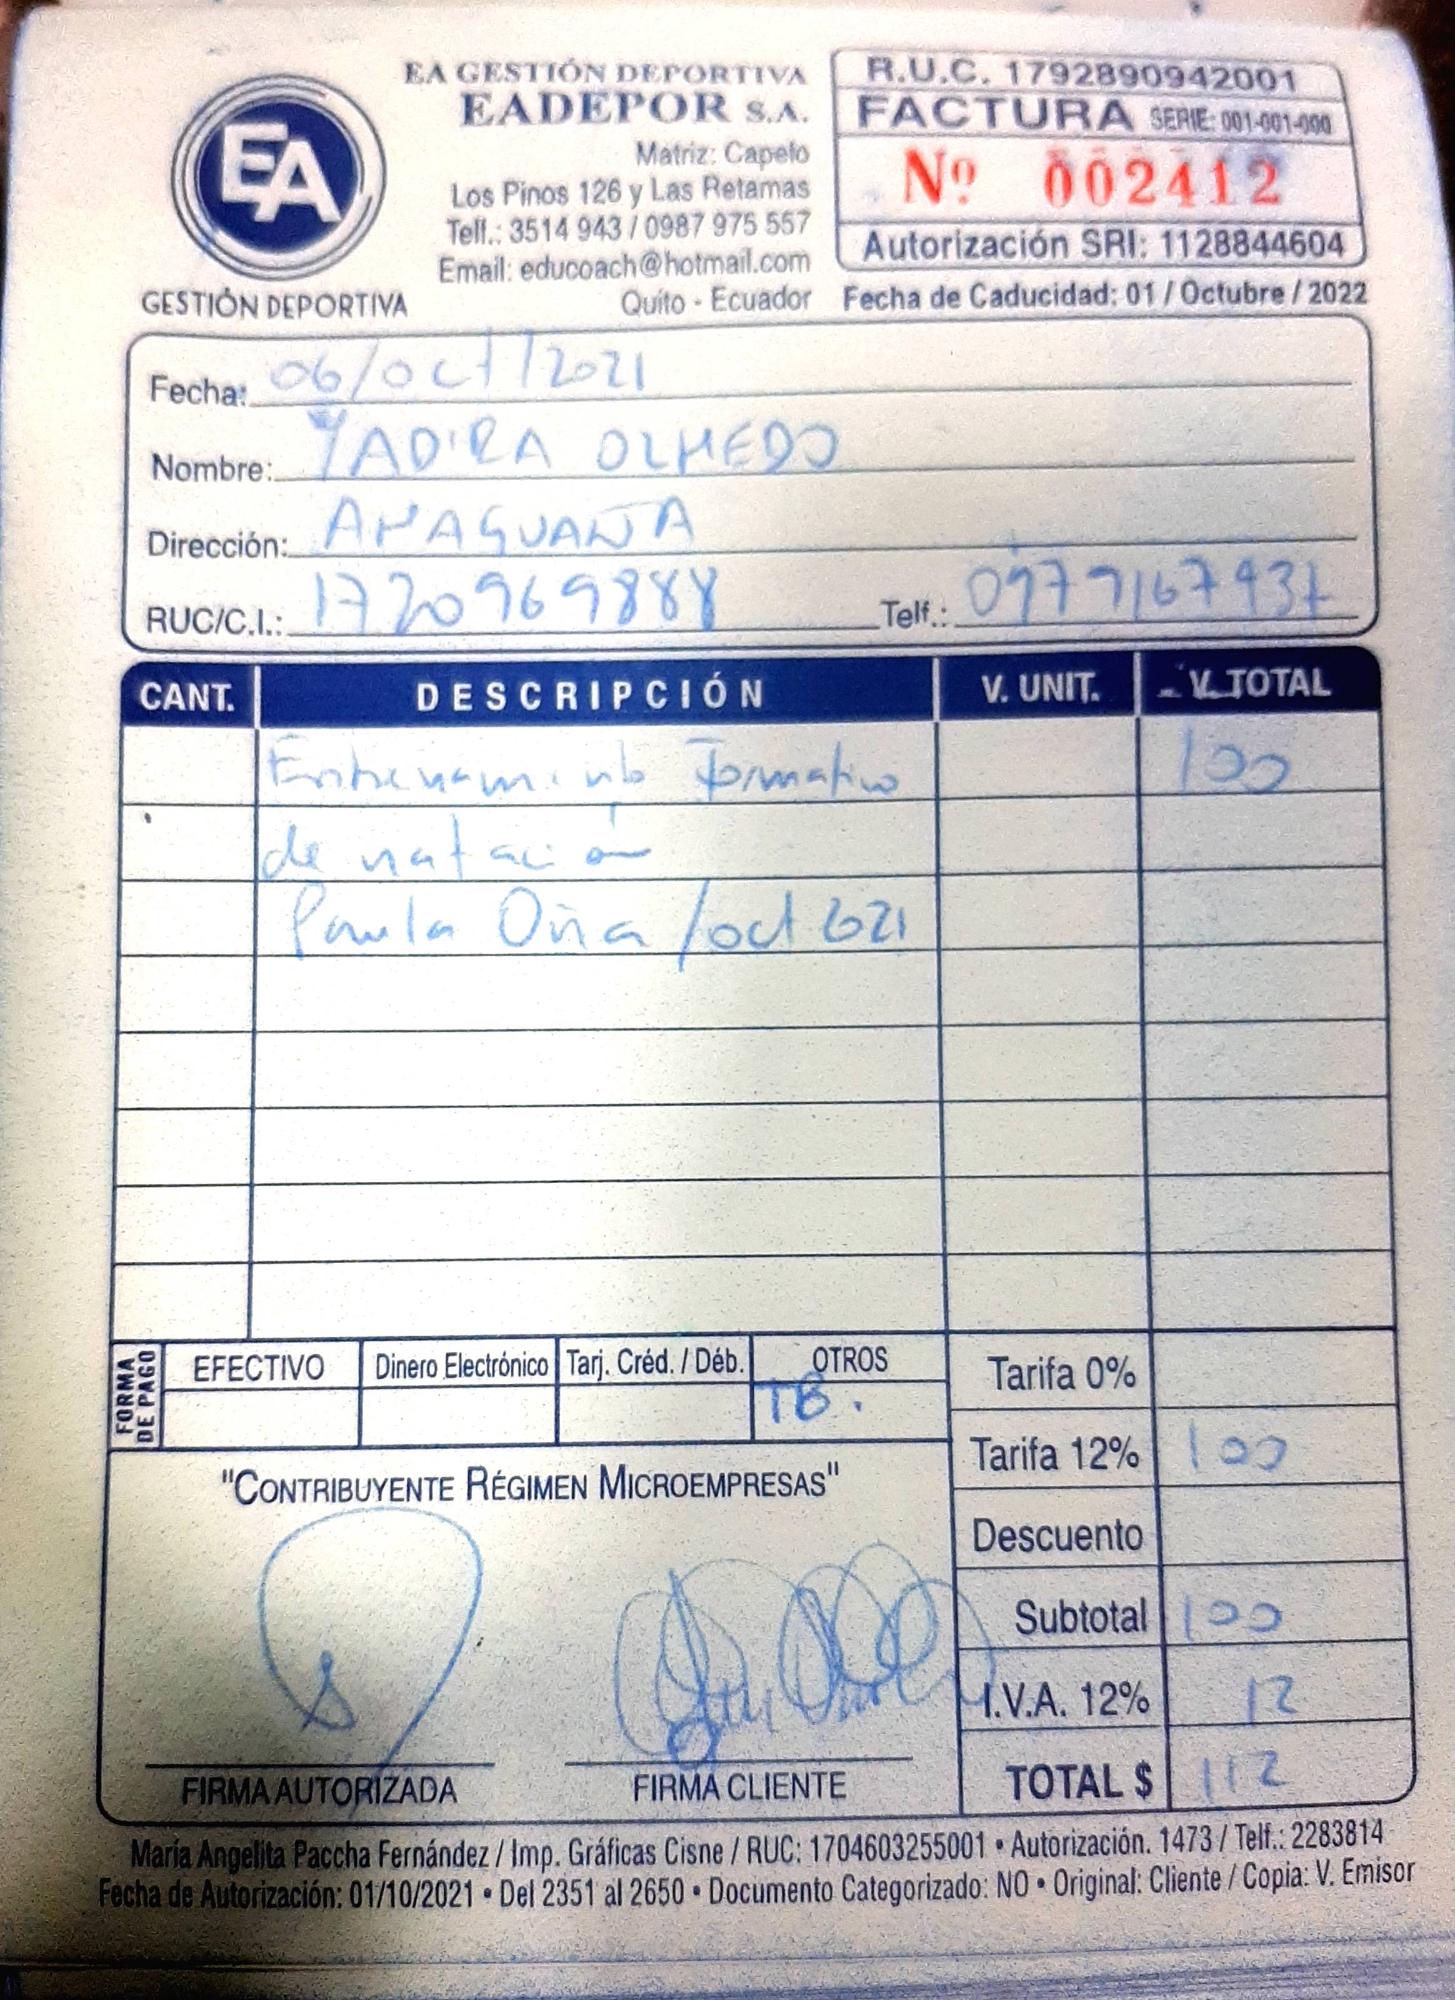 EA
GESTIÓN DEPORTIVA
EA GESTIÓN DEPORTIVA
EADEPOR S.A.
Matriz: Capelo
Los Pinos 126 y Las Retamas
Telf.: 3514 943 / 0987 975 557
Email: educoach@hotmail.com
Quito - Ecuador
R.U.C. 1792890942001
FACTURA SERIE: 001-001-000
Nº 002412
Autorización SRI: 1128844604
Fecha de Caducidad: 01 / Octubre / 2022
Fecha: 06/oct/2021
Nombre: YADIRA OLMEDO
Dirección: AMAGUAÑA
RUC/C.I.: 1720969888 Telf.: 0979167937
CANT. DESCRIPCIÓN V. UNIT. V. TOTAL
Entrenamiento Formativo 100
de natación
Paula Oña /oct 2021
FORMA DE PAGO
EFECTIVO Dinero Electrónico Tarj. Créd. / Déb. OTROS
TB.
Tarifa 0%
Tarifa 12% 100
Descuento
Subtotal 100
I.V.A. 12% 12
TOTAL $ 112
"CONTRIBUYENTE RÉGIMEN MICROEMPRESAS"
FIRMA AUTORIZADA FIRMA CLIENTE
María Angelita Paccha Fernández / Imp. Gráficas Cisne / RUC: 1704603255001 • Autorización. 1473 / Telf.: 2283814
Fecha de Autorización: 01/10/2021 • Del 2351 al 2650 • Documento Categorizado: NO • Original: Cliente / Copia: V. Emisor